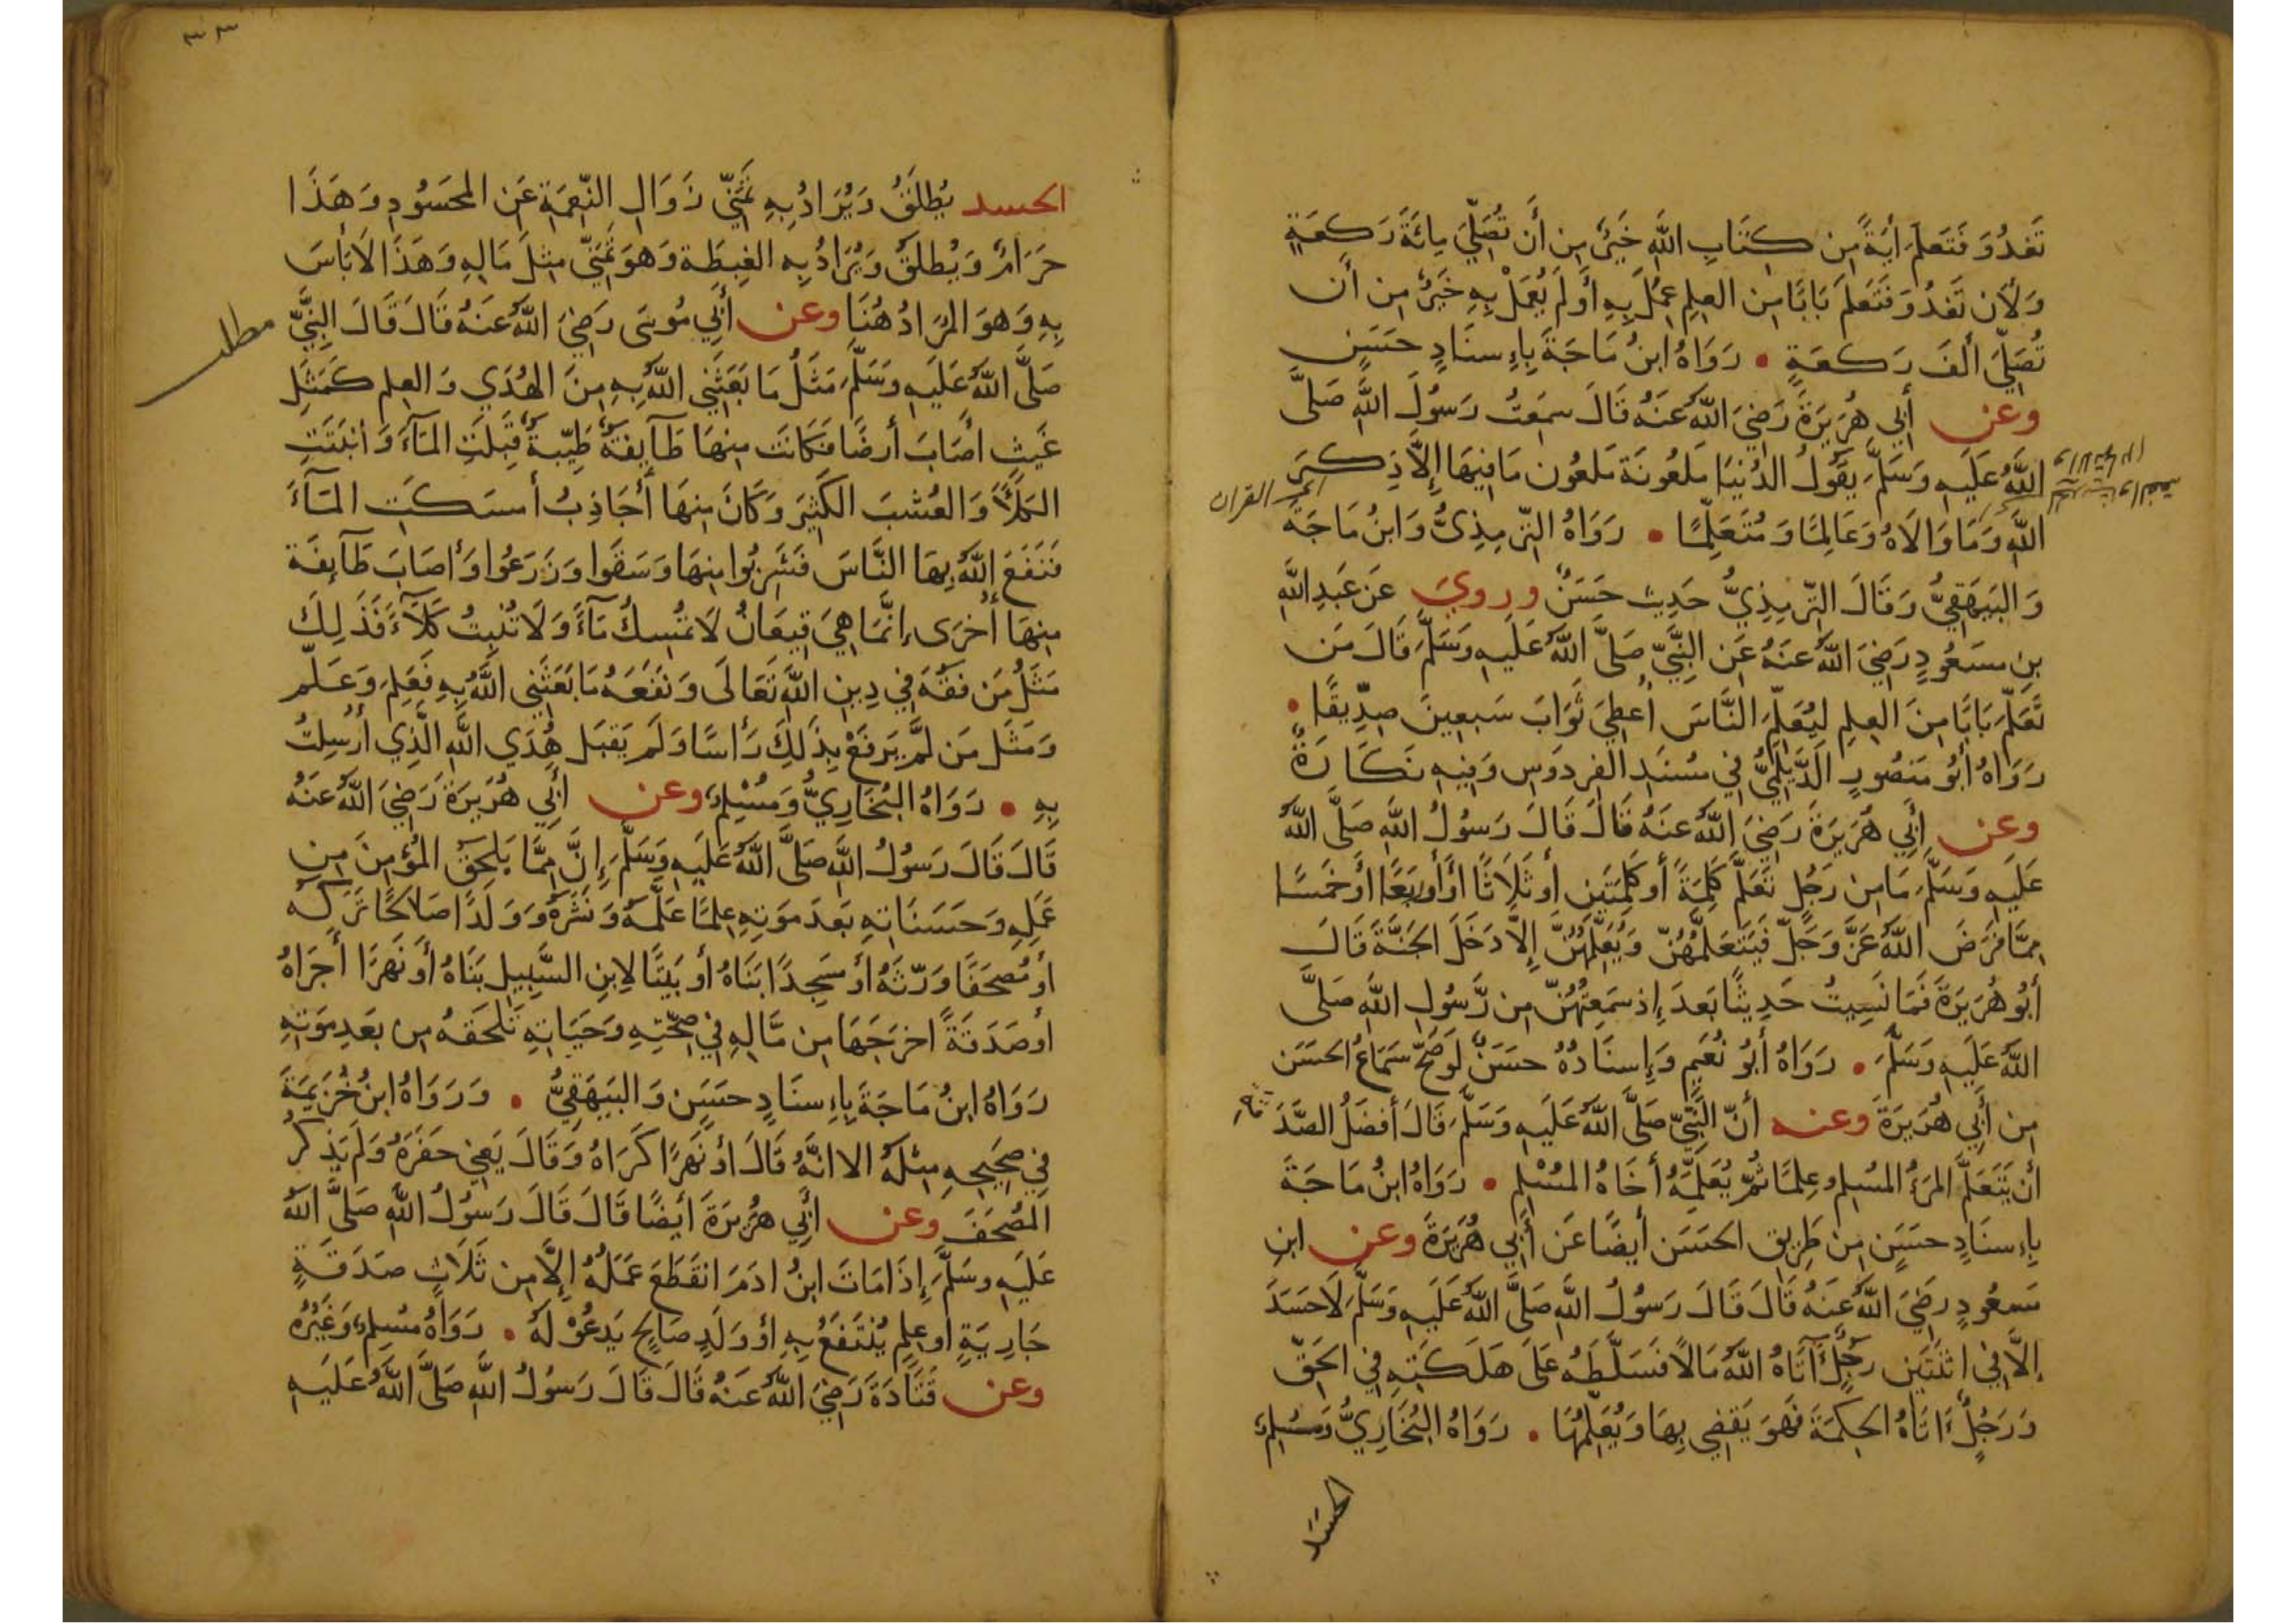 تَغدُوَ فَتَعَلَّمَ اٰيَةً مِن كِتَابِ اللَّهِ خَيرٌ مِن أَن تُصَلِّيَ مِائَةَ رَكعَةٍ
وَلأَن تَغدُوَ فَتَعَلَّمَ بَابًا مِن العِلمِ عُمِلَ بِهِ أَو لَم يُعمَلْ بِهِ خَيرٌ مِن أَن
تُصَلِّيَ أَلفَ رَكعَةٍ • رَوَاهُ ابنُ مَاجَةَ بِإِسنَادٍ حَسَنٍ
وعن أَبِي هُرَيرَةَ رَضِيَ اللَّهُ عَنهُ قَالَ سَمِعتُ رَسُولَ اللَّهِ صَلَّى
اللَّهُ عَلَيهِ وَسَلَّمَ يَقُولُ الدُنيَا مَلعُونَة مَلعُون مَا فِيهَا إِلاَّ ذِكرَ
القران
اللَّهِ وَمَا وَالَاهُ وَعَالِمًا وَمُتَعَلِّمًا • رَوَاهُ التِّرمِذِىُّ وَابنُ مَاجَةَ
وَالبَيهَقِيُّ وَقَالَ التِّرمِذِيُّ حَدِيث حَسَنٌ وروي عَن عَبدِ اللَّهِ
بنِ مسعُودٍ رَضِيَ اللَّهُ عَنهُ عَنِ النَّبِيِّ صَلَّى اللَّهُ عَلَيهِ وَسَلَّمَ قَالَ مَن
تَعَلَّمَ بَابًا مِنَ العِلمِ لِيُعَلِّمَ النَّاسَ أُعطِيَ ثَوَابَ سَبعِينَ صِدِّيقًا •
رَوَاهُ أَبُو مَنصُورٍ الدَّيلَمِيُّ فِي مُسنَدِ الفِردَوسِ وَفِيهِ نَكَارَةٌ
وعن أَبِي هُرَيرَةَ رَضِيَ اللَّهُ عَنهُ قَالَ قَالَ رَسُولُ اللَّهِ صَلَّى اللَّهُ
عَلَيهِ وَسَلَّمَ مَا مِن رَجُلٍ تَعَلَّمَ كَلِمَةً أَو كَلِمَتَينِ أَو ثَلَاثًا أَو أَربَعًا أَو خَمسًا
مِمَّا فَرَضَ اللَّهُ عَزَّ وَجَلَّ فَيَتَعَلَّمُهُنّ وَيُعَلِّمُهُنَّ إِلاَّ دَخَلَ الجَنَّةَ قَالَ
أَبُو هُرَيرَةَ فَمَا نَسِيتُ حَدِيثًا بَعدَ إِذ سَمِعتُهُنّ مِن رَّسُولِ اللَّهِ صَلَّى
اللَّهُ عَلَيهِ وَسَلَّمَ • رَوَاهُ أَبُو نُعَيمٍ وَإِسنَادُهُ حَسَنٌ لَو صَحَّ سَمَاعُ الحَسَن
مِن أَبِي هُرَيرَةَ وعنه أَنّ النَّبِيّ صَلَّى اللَّهُ عَلَيهِ وَسَلَّمَ قَالَ أَفضَلُ الصَّدَ
قة
أَن يَتَعَلَّمَ المَرءُ المُسلِمُ عِلمًا ثُمَّ يُعَلِّمَهُ أَخَاهُ المُسْلِم • رَوَاهُ ابنُ مَاجَةَ
بِإِسنَادٍ حسَنٍ مِن طَرِيقِ الحَسَن أَيضًا عَن أَبِي هُرَيرَةَ وعن ابنِ
مَسعُودٍ رَضِيَ اللَّهُ عَنهُ قَالَ قَالَ رَسُولُ اللَّهِ صَلَّى اللَّهُ عَلَيهِ وَسَلَّمَ لَا حَسَدَ
إلاَّ فِي اثنَتَينِ رَجُلٍ آتَاهُ اللَّهُ مَالًا فَسَلَّطَهُ عَلَى هَلَكَتِهِ فِي الحَقِّ
وَرَجُلٍ ءَاتَاهُ الحِكمَةَ فَهوَ يَقضِي بِهَا وَيُعَلِّمُهَا • رَوَاهُ البُخَارِيُّ وَمُسْلِم
الحَسَد
٣٣
الحسد يُطلَقُ وَيُرَادُ بِهِ تَمَنِّي زَوَالِ النِّعمَةِ عَنِ المَحسُودِ وَهَذَا
حَرَامٌ وَيُطلَقُ وَيُرَادُ بِهِ الغِبطَة وَهوَ تَمَنِّي مِثلَ مَالِهِ وَهَذَا لَا بَأسَ
بِهِ وَهوَ المُرَادُ هُنَا وعن أَبِي مُوسَى رَضِيَ اللَّهُ عَنهُ قَالَ قَالَ النَّبِيُّ
مطلب
صَلَّى اللَّهُ عَلَيهِ وَسَلَّمَ مَثَلُ مَا بَعَثَنِي اللَّهُ بِهِ مِنَ الهُدَي وَالعِلمِ كَمَثَلِ
غَيثٍ أَصَابَ أَرضًا فَكَانَت مِنهَا طَآيِفَةٌ طَيِّبةٌ قَبِلَتِ المَآءَ وَانبَتَتِ
الكَلَأَ وَالعُشبَ الكَثِيرَ وَكَانَ مِنهَا أَجَاذِبُ أَمسَكَتِ المَآءَ
فَنَفَعَ اللَّهُ بِهَا النَّاسَ فَشَرِبُوا مِنهَا وَسَقَوا وَزَرَعُوا وَأَصَابَ طَآيِفَة
مِنهَا أُخرَى إِنَّمَا هِيَ قِيعَانٌ لَا تُمسِكُ مَآءً وَلَا تُنبِتُ كَلَآءً فَذَلِكَ
مَثَلُ مَن فَقُهَ فِي دِينِ اللَّهِ تَعَالَى وَنَفَعَهُ مَا بَعَثَنِي اللَّهُ بِهِ فَعَلِمَ وَعَلَّمَ
وَمَثَل مَن لَّم يَرفَعْ بِذَلِكَ رَأسًا وَلَم يَقبَل هُدَي اللَّهِ الَّذِي أُرسِلتُ
بِهِ • رَوَاهُ البُخَارِيُّ وَمُسْلِم وعن أَبِي هُرَيرَةَ رَضِيَ اللَّهُ عَنهُ
قَالَ قَالَ رَسُولُ اللَّهِ صَلَّى اللَّهُ عَلَيهِ وَسَلَّمَ إِنَّ مِمَّا يَلحَقُ المُؤمِنَ مِن
عَمَلِهِ وَحَسَنَاتِهِ بَعدَ مَوتِهِ عِلمًا عَلَّمَهُ وَنَشَرَهُ وَوَلَدًا صَالِحًا تَرَكَهُ
أَو مُصحَفًا وَرَّثَهُ أَو مَسجِدًا بَنَاهُ أَو بَيتًا لِابنِ السَّبِيلِ بَنَاهُ أَو نَهرًا أَجرَاهُ
أَو صَدَقَةً اخرَجَهَا مِن مَّالِهِ فِي صِحَّتِهِ وَحَيَاتِهِ تَلحَقهُ مِن بَعدِ مَوتِهِ
رَوَاهُ ابنُ مَاجَةَ بِإِسنَادٍ حَسَنٍ وَالبَيهَقِيُّ • وَرَوَاهُ ابنُ خُزَيمَةَ
فِي صَحِيحِهِ مِثلَهُ الا انَّهُ قَالَ أَو نَهرًا كَرَاهُ وَقَالَ يَعنِي حَفَرَهُ وَلَم يَذكُر
المُصحَفَ وعن أَبِي هُرَيرَةَ أَيضًا قَالَ قَالَ رَسُولُ اللَّهِ صَلَّى اللَّهُ
عَلَيهِ وسَلَّمَ إِذَا مَاتَ ابنُ ادَمَ انقَطَعَ عَمَلُهُ إِلاَّ مِن ثَلَاثٍ صَدَقَةٍ
جَارِيَةٍ أَو عِلمٍ يُنتَفَعُ بِهِ أَو وَلَدٍ صَالِحٍ يَدعُوْ لَهُ • رَوَاهُ مُسلِم وَغَيْرُهُ
وعن قَتَادَةَ رَضِيَ اللَّهُ عَنهُ قَالَ قَالَ رَسُولُ اللَّهِ صَلَّى اللَّهُ عَلَيهِ